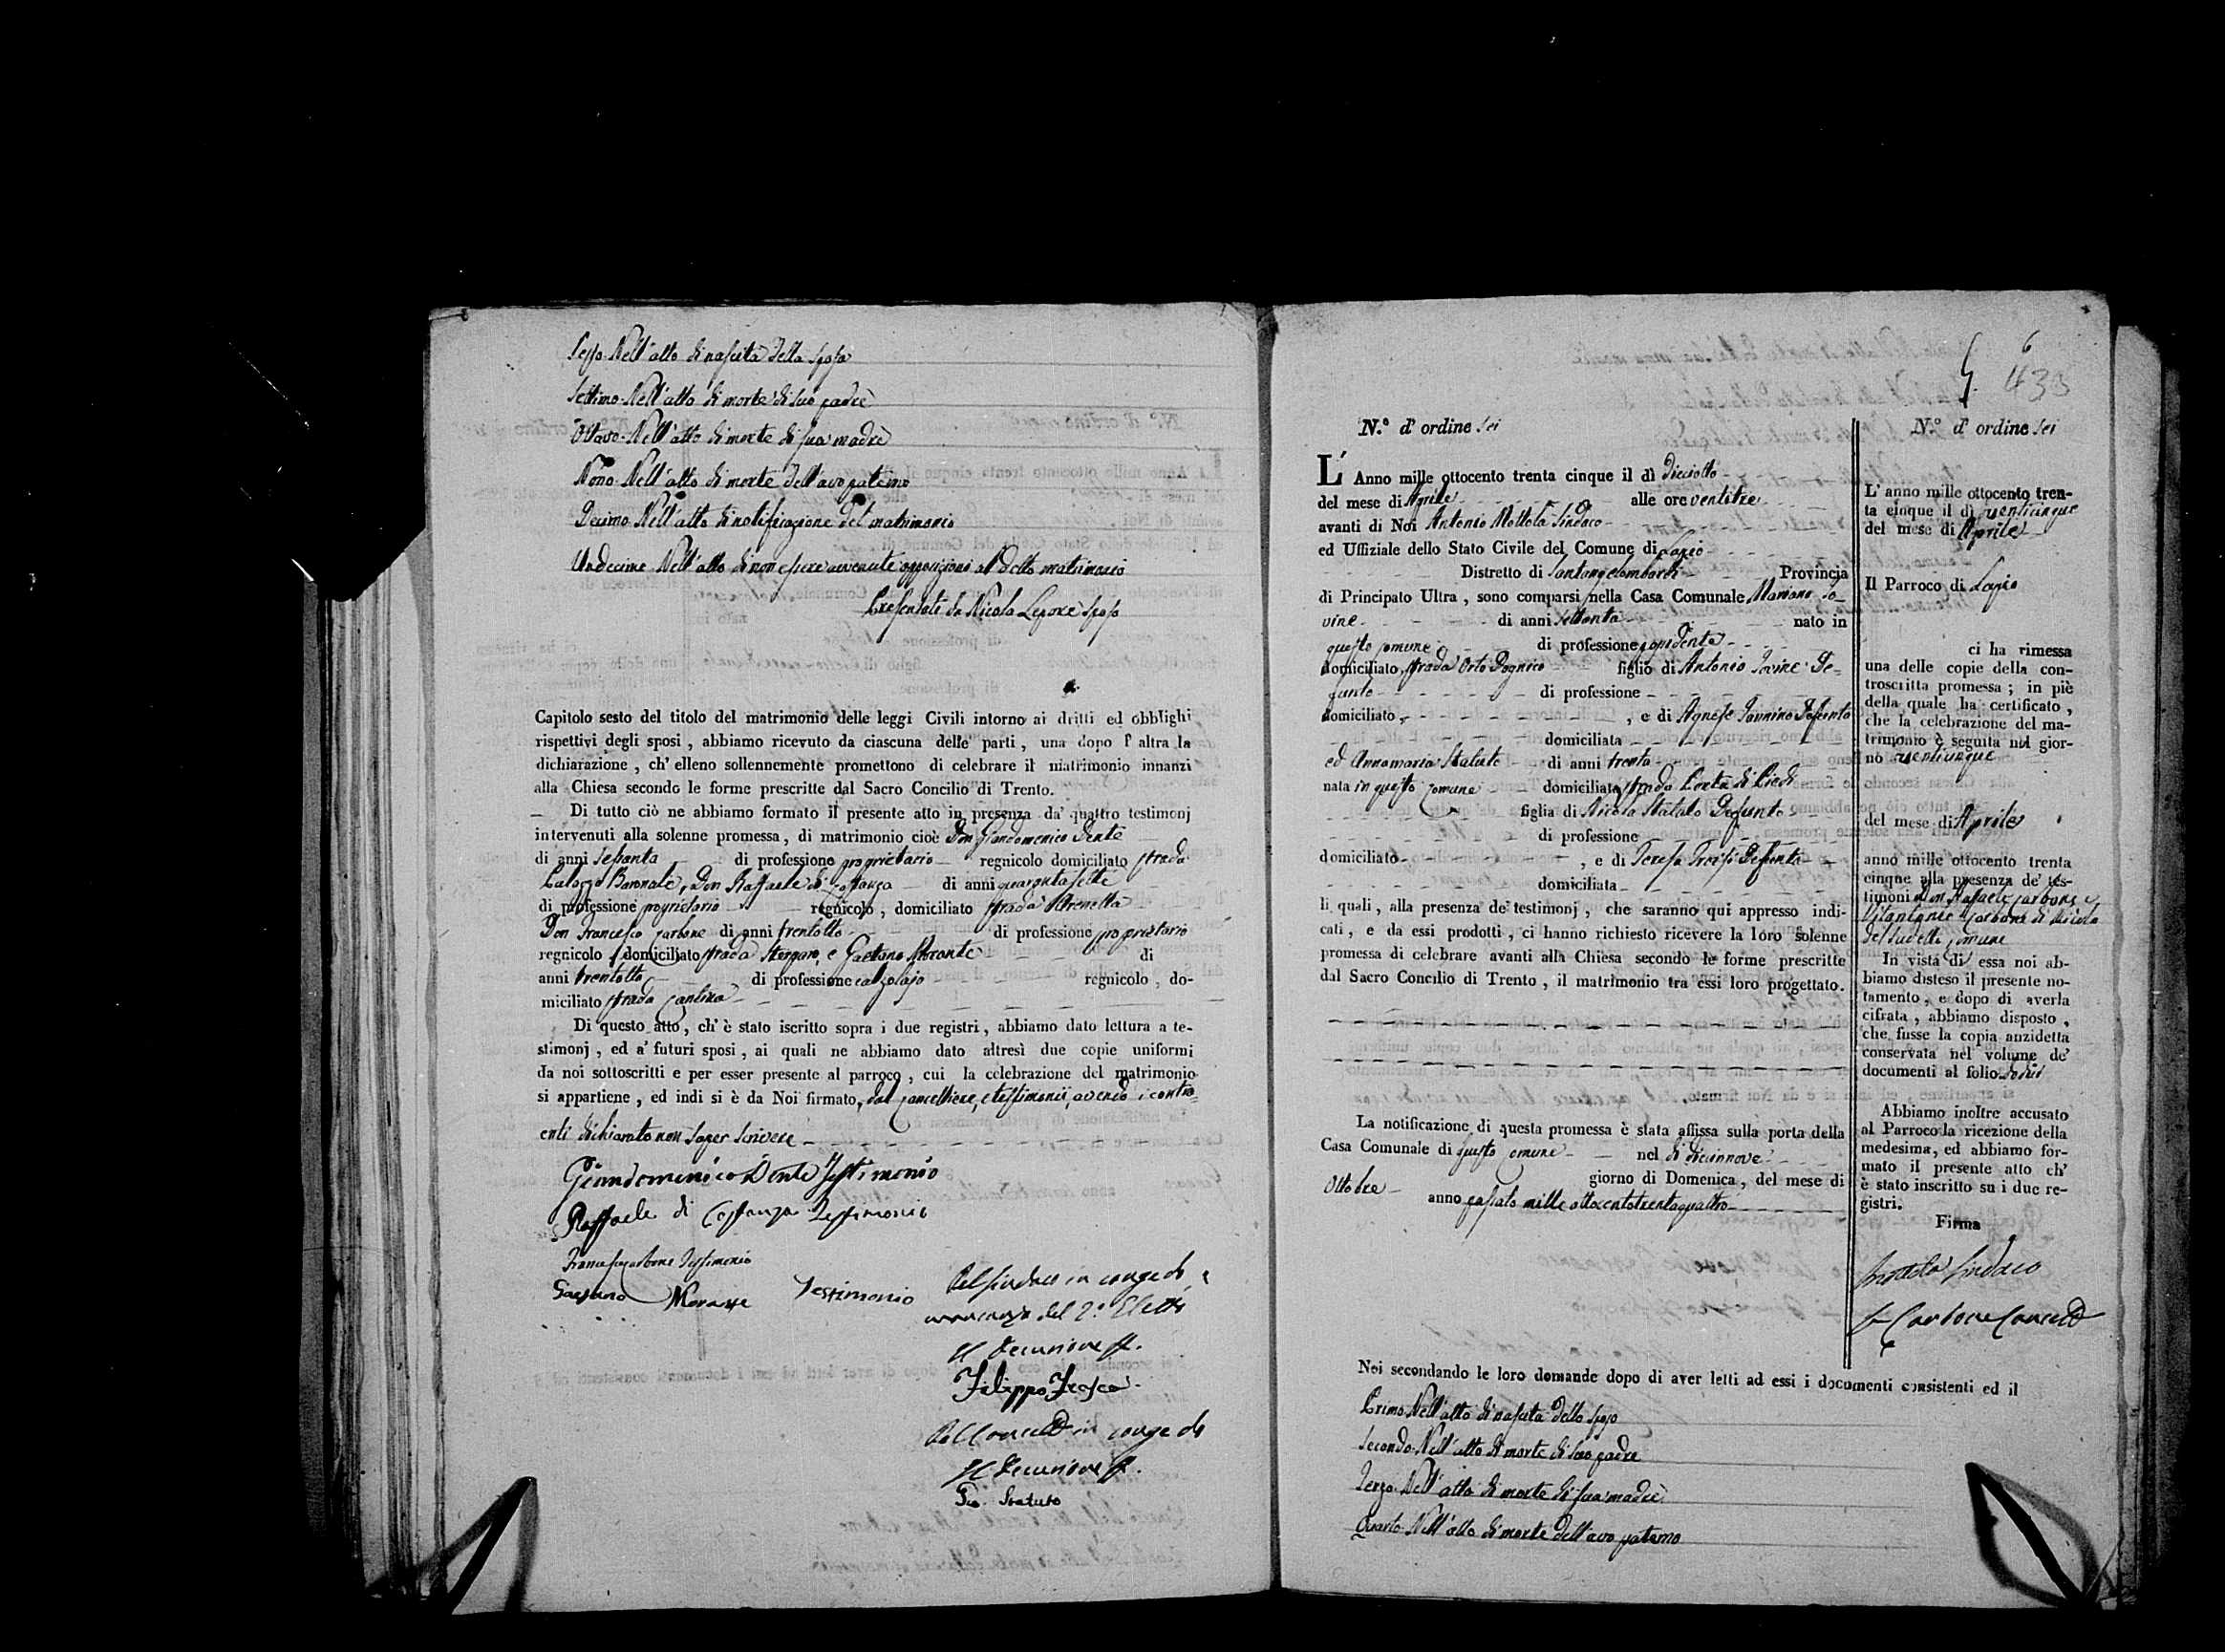 Sesto Nell'atto di nascita della sposa
Settimo Nell'atto di morte di suo padre
Ottavo Nell'atto di morte di sua madre
Nono Nell'atto di morte dell'avo paterno
Decimo Nell'atto di notificazione del matrimonio
Undecimo Nell'atto di non essere avvenute opposizioni al detto matrimonio
Presentati da Nicola Lepore sposo
Capitolo sesto del titolo del matrimonio delle leggi Civili intorno ai dritti ed obblighi
rispettivi degli sposi, abbiamo ricevuto da ciascuna delle parti, una dopo l' altra la
dichiarazione, ch' elleno sollennemente promettono di celebrare il matrimonio innanzi
alla Chiesa secondo le forme prescritte dal Sacro Concilio di Trento.
Di tutto ciò ne abbiamo formato il presente atto in presenza da' quattro testimonj
intervenuti alla solenne promessa, di matrimonio cioè Don Giandomenico Dente
di anni sessanta di professione proprietario regnicolo domiciliato strada
Palazzo Baronale, Don Raffaele di Costanza di anni quarantasette
di professione proprietario regnicolo, domiciliato strada
Don Francesco Carbone di anni trentotto di professione proprietario
regnicolo domiciliato strada e Gaetano Morante di
anni trentotto di professione calzolajo regnicolo, do-
miciliato strada Cantina
Di questo atto, ch' è stato iscritto sopra i due registri, abbiamo dato lettura a te-
stimonj, ed a' futuri sposi, ai quali ne abbiamo dato altresì due copie uniformi
da noi sottoscritti e per esser presente al parroco, cui la celebrazione del matrimonio
si appartiene, ed indi si è da Noi firmato, dal Cancelliere, e testimonii, avendo i contra-
enti dichiarato non saper scrivere
Giandomenico Dente Testimonio
Raffaele di Costanza Testimonio
Francesco Carbone Testimonio
Gaetano Morante Testimonio
Pel Sindaco in congedo, e
mancanza del 2.º Eletto
Il Decurione ff.
Filippo Fresca
Pel Cancell. in congedo
Il Decurione ff.
6
433
N.º d' ordine sei
L' Anno mille ottocento trenta cinque il dì dieciotto
del mese di Aprile alle ore ventitre
avanti di Noi Antonio Mottola Sindaco
ed Uffiziale dello Stato Civile del Comune di Lapio
Distretto di Santangelombardi Provincia
di Principato Ultra, sono comparsi nella Casa Comunale Mariano Io-
vine di anni settanta nato in
questo comune di professione possidente
domiciliato strada Orto figlio di Antonio Iovine De-
funto di professione
domiciliato, e di Agnese Iannino Defunta
domiciliata
ed Annamaria Statuto di anni trenta
nata in questo Comune domiciliata strada Porta di Piedi
figlia di Nicola Statuto Defunto
di professione
domiciliato, e di Teresa Troisi Defunta
domiciliata
li quali, alla presenza de' testimonj, che saranno qui appresso indi-
cati, e da essi prodotti, ci hanno richiesto ricevere la loro solenne
promessa di celebrare avanti alla Chiesa secondo le forme prescritte
dal Sacro Concilio di Trento, il matrimonio tra essi loro progettato.
La notificazione di questa promessa è stata affissa sulla porta della
Casa Comunale di questo comune nel dì diciannove
giorno di Domenica, del mese di
Ottobre
anno passato mille ottocentotrentaquattro
N.º d' ordine sei
L' anno mille ottocento tren-
ta cinque il dì venticinque
del mese di Aprile
Il Parroco di Lapio
ci ha rimessa
una delle copie della con-
troscritta promessa; in piè
della quale ha certificato,
che la celebrazione del ma-
trimonio è seguita nel gior-
no venticinque
del mese di Aprile
anno mille ottocento trenta
cinque alla presenza de' tes-
timoni Don Raffaele Carbone e
Vitantonio Carbone di Nicola
del sudetto comune
In vista di essa noi ab-
biamo disteso il presente no-
tamento, e dopo di averla
cifrata, abbiamo disposto,
che fusse la copia anzidetta
conservata nel volume de'
documenti al folio
Abbiamo inoltre accusato
al Parroco la ricezione della
medesima, ed abbiamo for-
mato il presente atto ch'
è stato inscritto su i due re-
gistri.
Firma
Mottola Sindaco
Carbone Cancell.
Noi secondando le loro domande dopo di aver letti ad essi i documenti consistenti ed il
Primo Nell'atto di nascita dello sposo
Secondo Nell'atto di morte di suo padre
Terzo Nell'atto di morte di sua madre
Quarto Nell'atto di morte dell'avo paterno